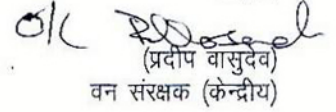 O/C
(प्रदीप वासुदेव)
वन संरक्षक (केन्द्रीय)